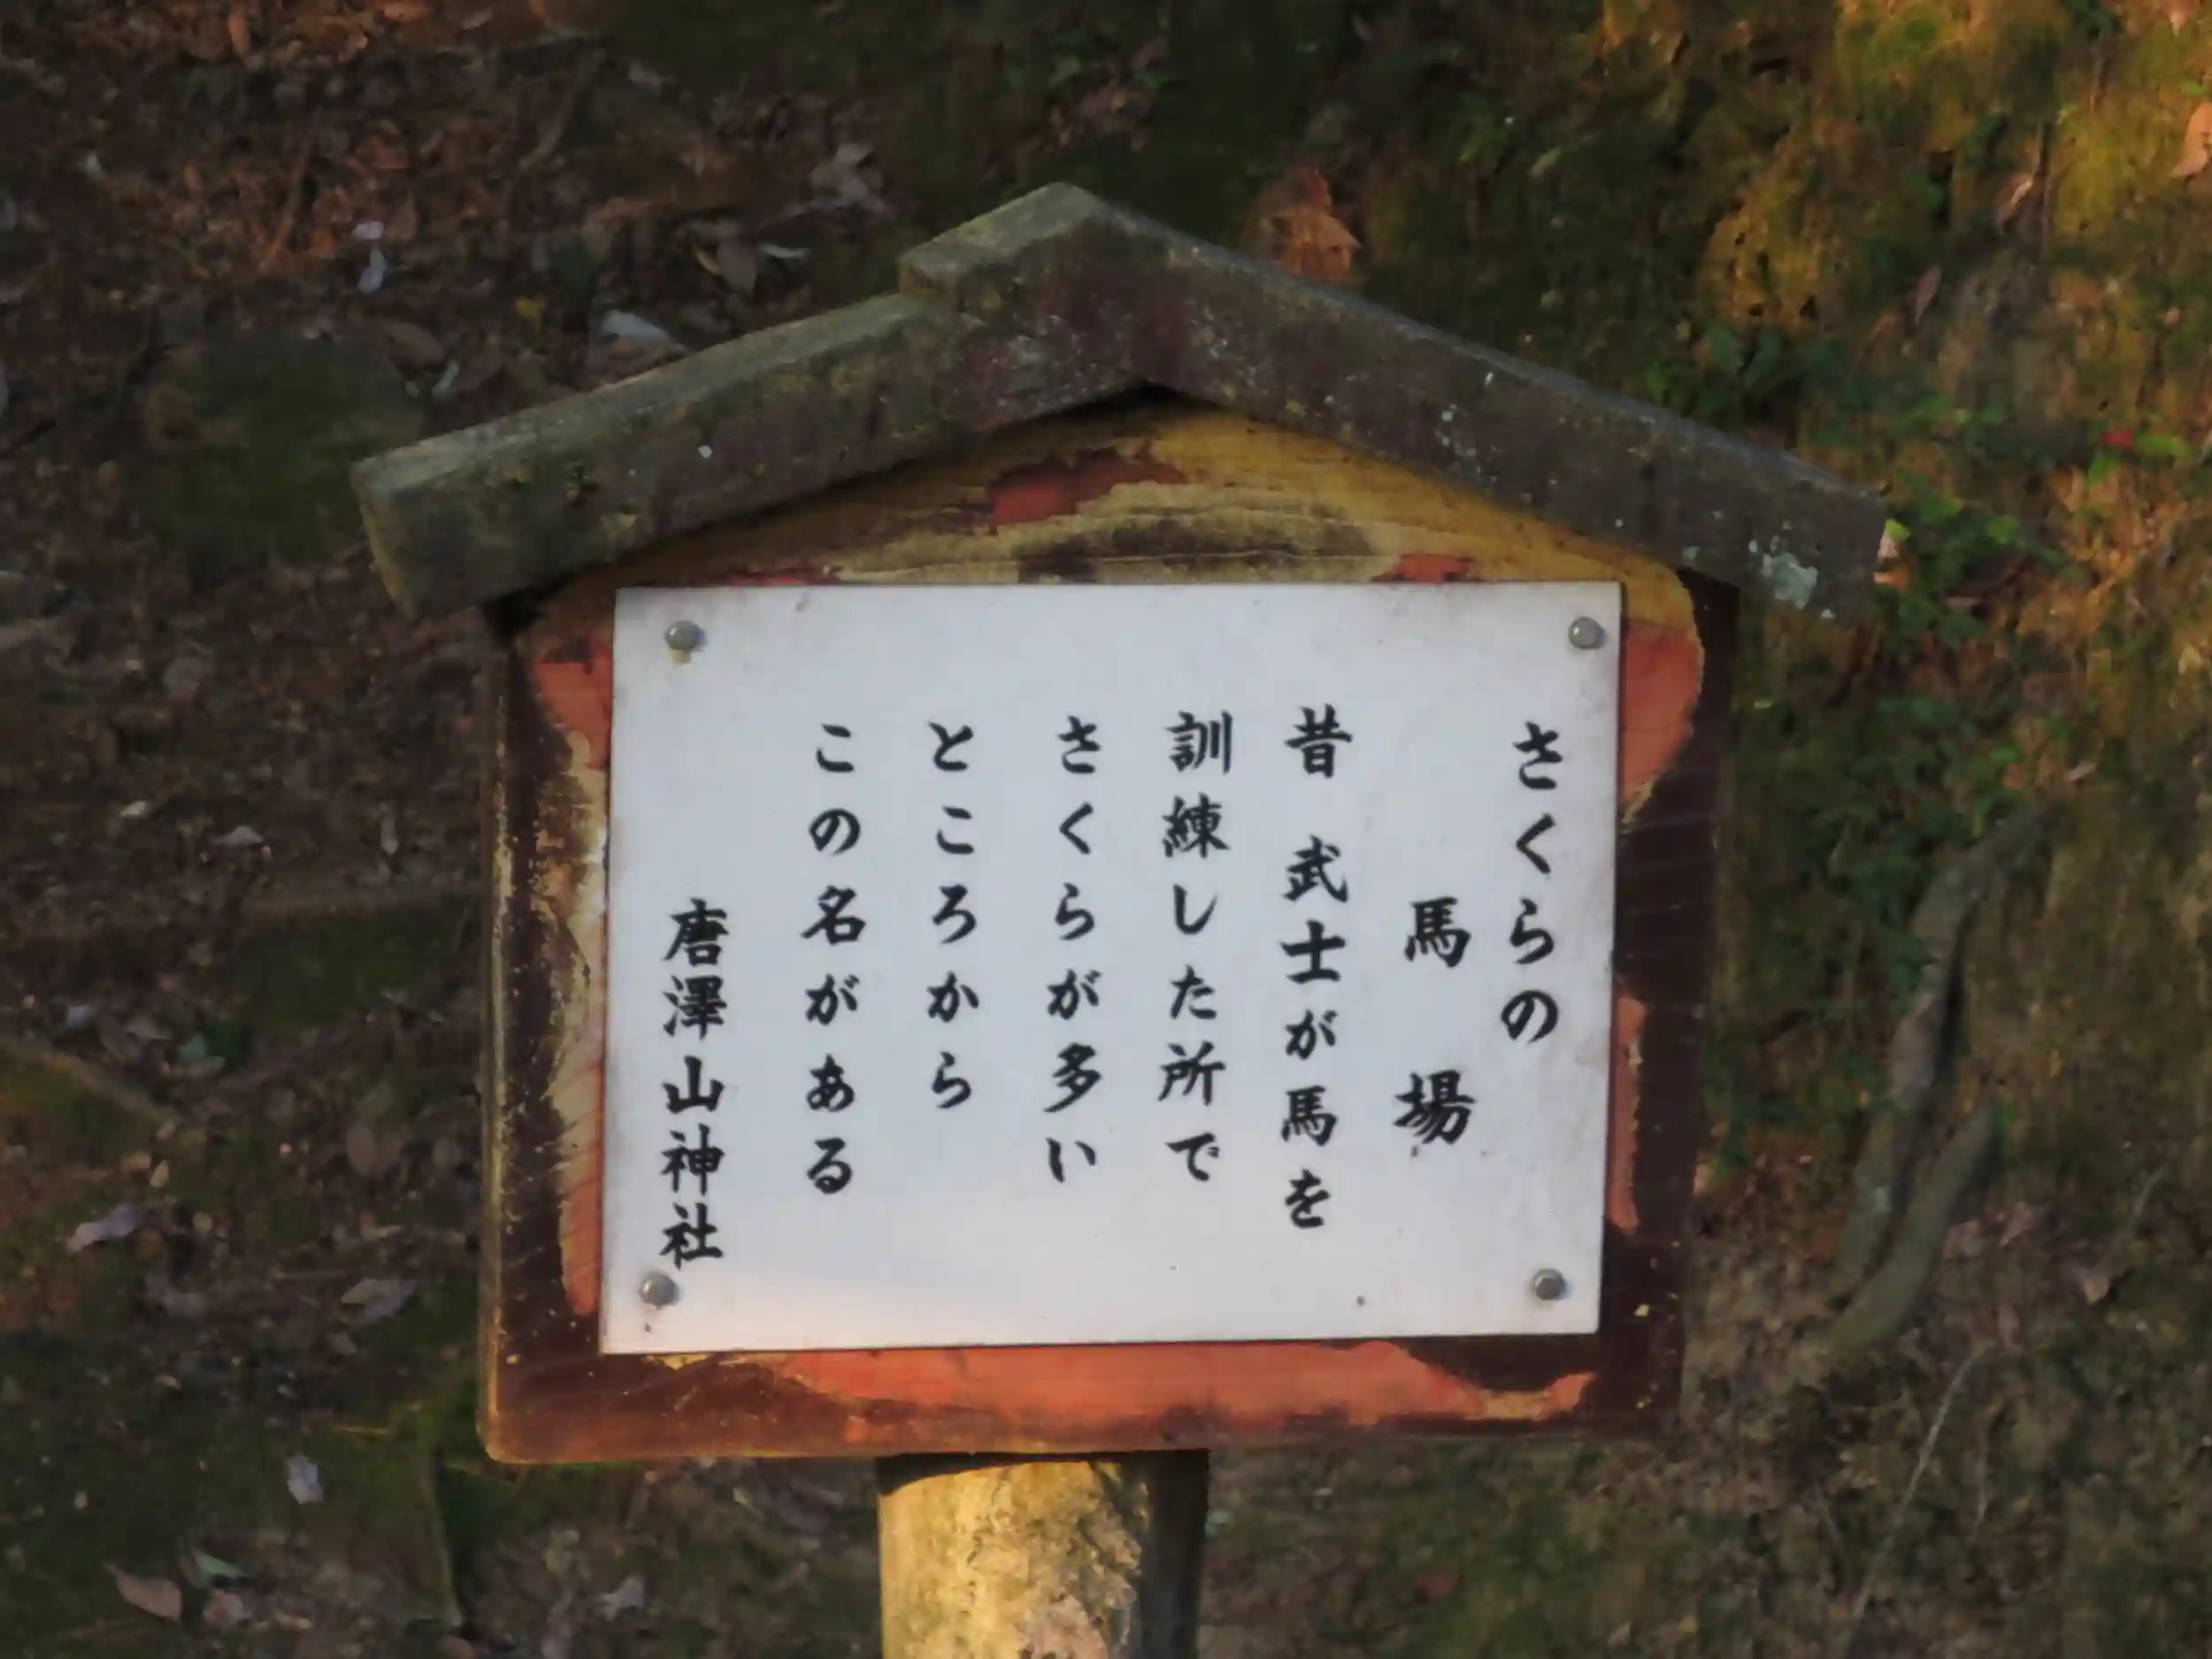 さくらの
馬場
昔 武士が馬を
訓練した所で
さくらが多い
ところから
この名がある
唐澤山神社